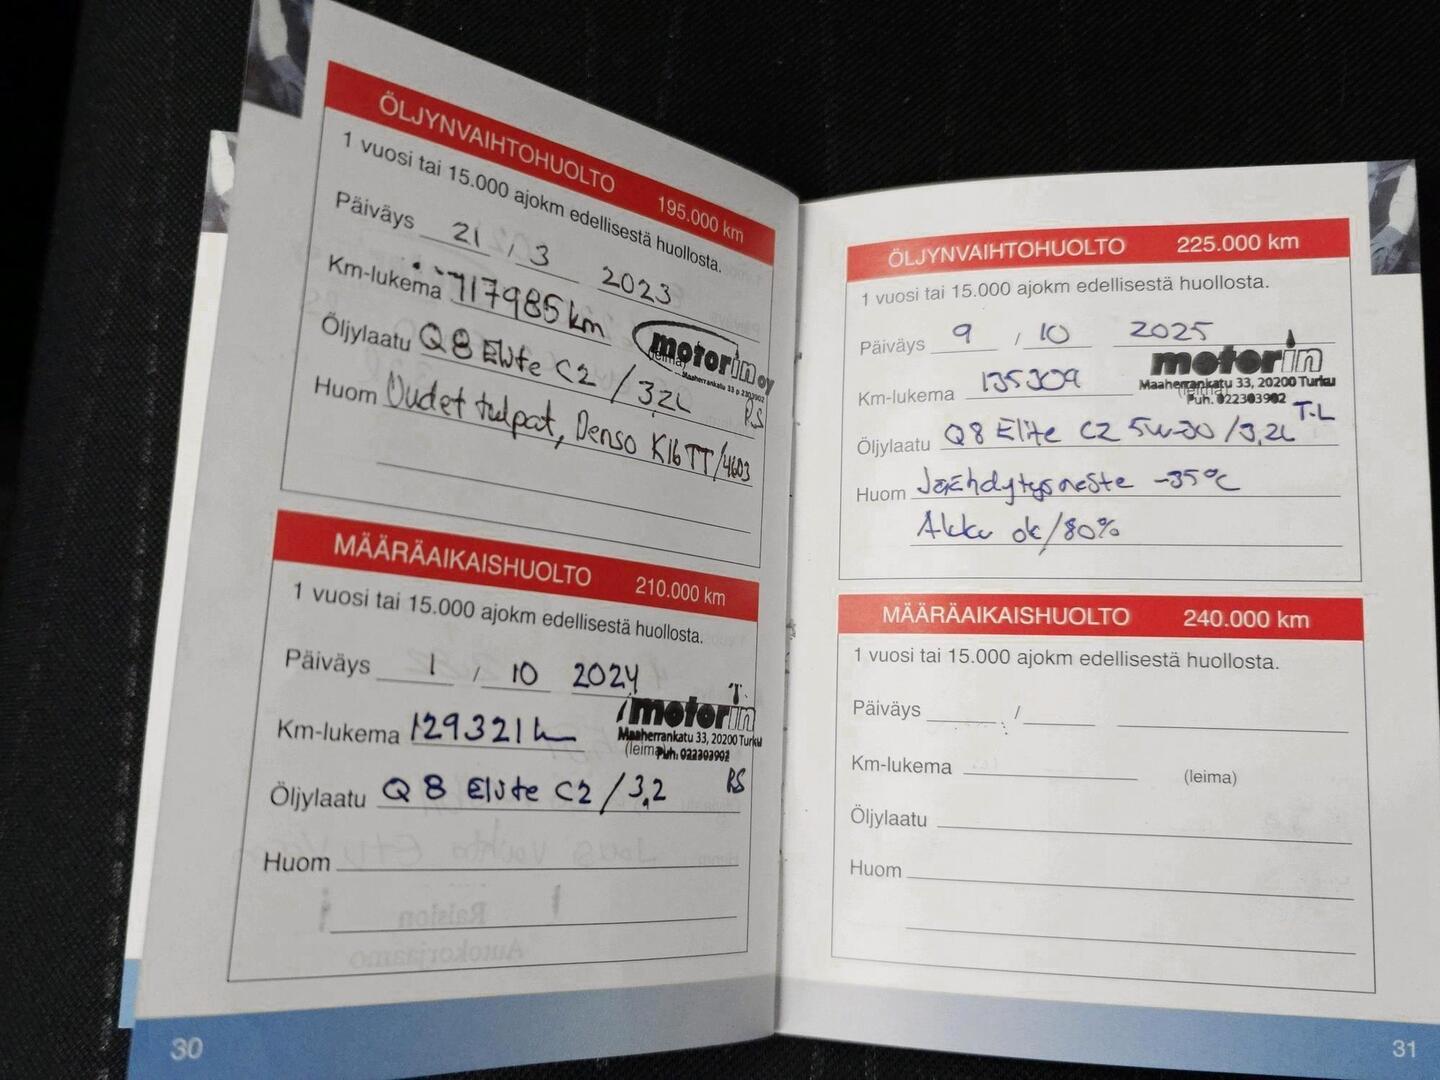 ÖLJYNVAIHTOHUOLTO 195.000 km
1 vuosi tai 15.000 ajokm edellisestä huollosta.
Päiväys 21 / 3 2023
Km-lukema 117985 km
motorin oy
(leima)
Maaherrankatu 33
Öljylaatu Q8 Elite C2 / 3,2L RS
Huom Uudet tulpat, Denso K16TT/4603
MÄÄRÄAIKAISHUOLTO 210.000 km
1 vuosi tai 15.000 ajokm edellisestä huollosta.
Päiväys 1 / 10 2024
motorin
Km-lukema 129321 km
Maaherrankatu 33, 20200 Turku
(leima)
Puh. 022303902
Öljylaatu Q8 Elite C2 / 3,2 RS
Huom
30
ÖLJYNVAIHTOHUOLTO 225.000 km
1 vuosi tai 15.000 ajokm edellisestä huollosta.
Päiväys 9 / 10 2025
motorin
Km-lukema 135309
Maaherrankatu 33, 20200 Turku
(leima)
Puh. 022303902
T.L
Öljylaatu Q8 Elite C2 5W-30 /3,2L
Huom Jäähdytysneste -35°C
Akku ok/80%
MÄÄRÄAIKAISHUOLTO 240.000 km
1 vuosi tai 15.000 ajokm edellisestä huollosta.
Päiväys /
Km-lukema (leima)
Öljylaatu
Huom
31